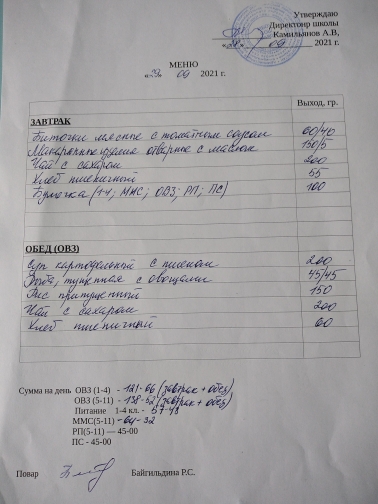 Утверждаю
Директоир школы
Камильянов А.В,
09 2021 г.
МЕНЮ
«9» 09 2021 г.
Выход, гр.
ЗАВТРАК
Биточки мясные с томатным соусом 60/40
Макаронные изделия отварные с маслом 150/5
Чай с сахаром 200
Хлеб пшеничный 55
Булочка (1-4; ММС; ОВЗ; РП; ПС) 100
ОБЕД (ОВЗ)
Суп картофельный с пшеном 200
Рыба, тушенная с овощами 45/45
Рис припущенный 150
Чай с сахаром 200
Хлеб пшеничный 60
Сумма на день ОВЗ (1-4) - 121-06 (завтрак + обед)
ОВЗ (5-11) - 138-52 (завтрак + обед)
Питание 1-4 кл. - 57-43
ММС(5-11) -64-32
РП(5-11) — 45-00
ПС - 45-00
Повар Байгильдина Р.С.